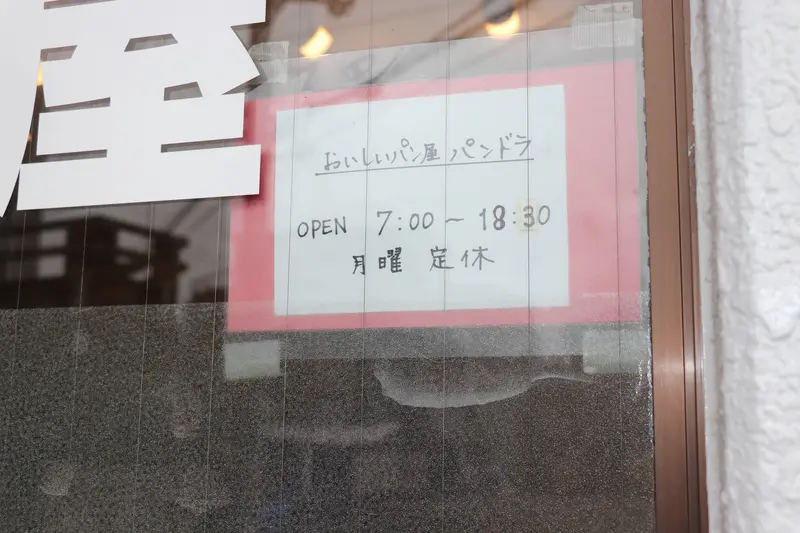 屋
おいしいパン屋 パンドラ
OPEN 7:00〜18:30
月曜 定休